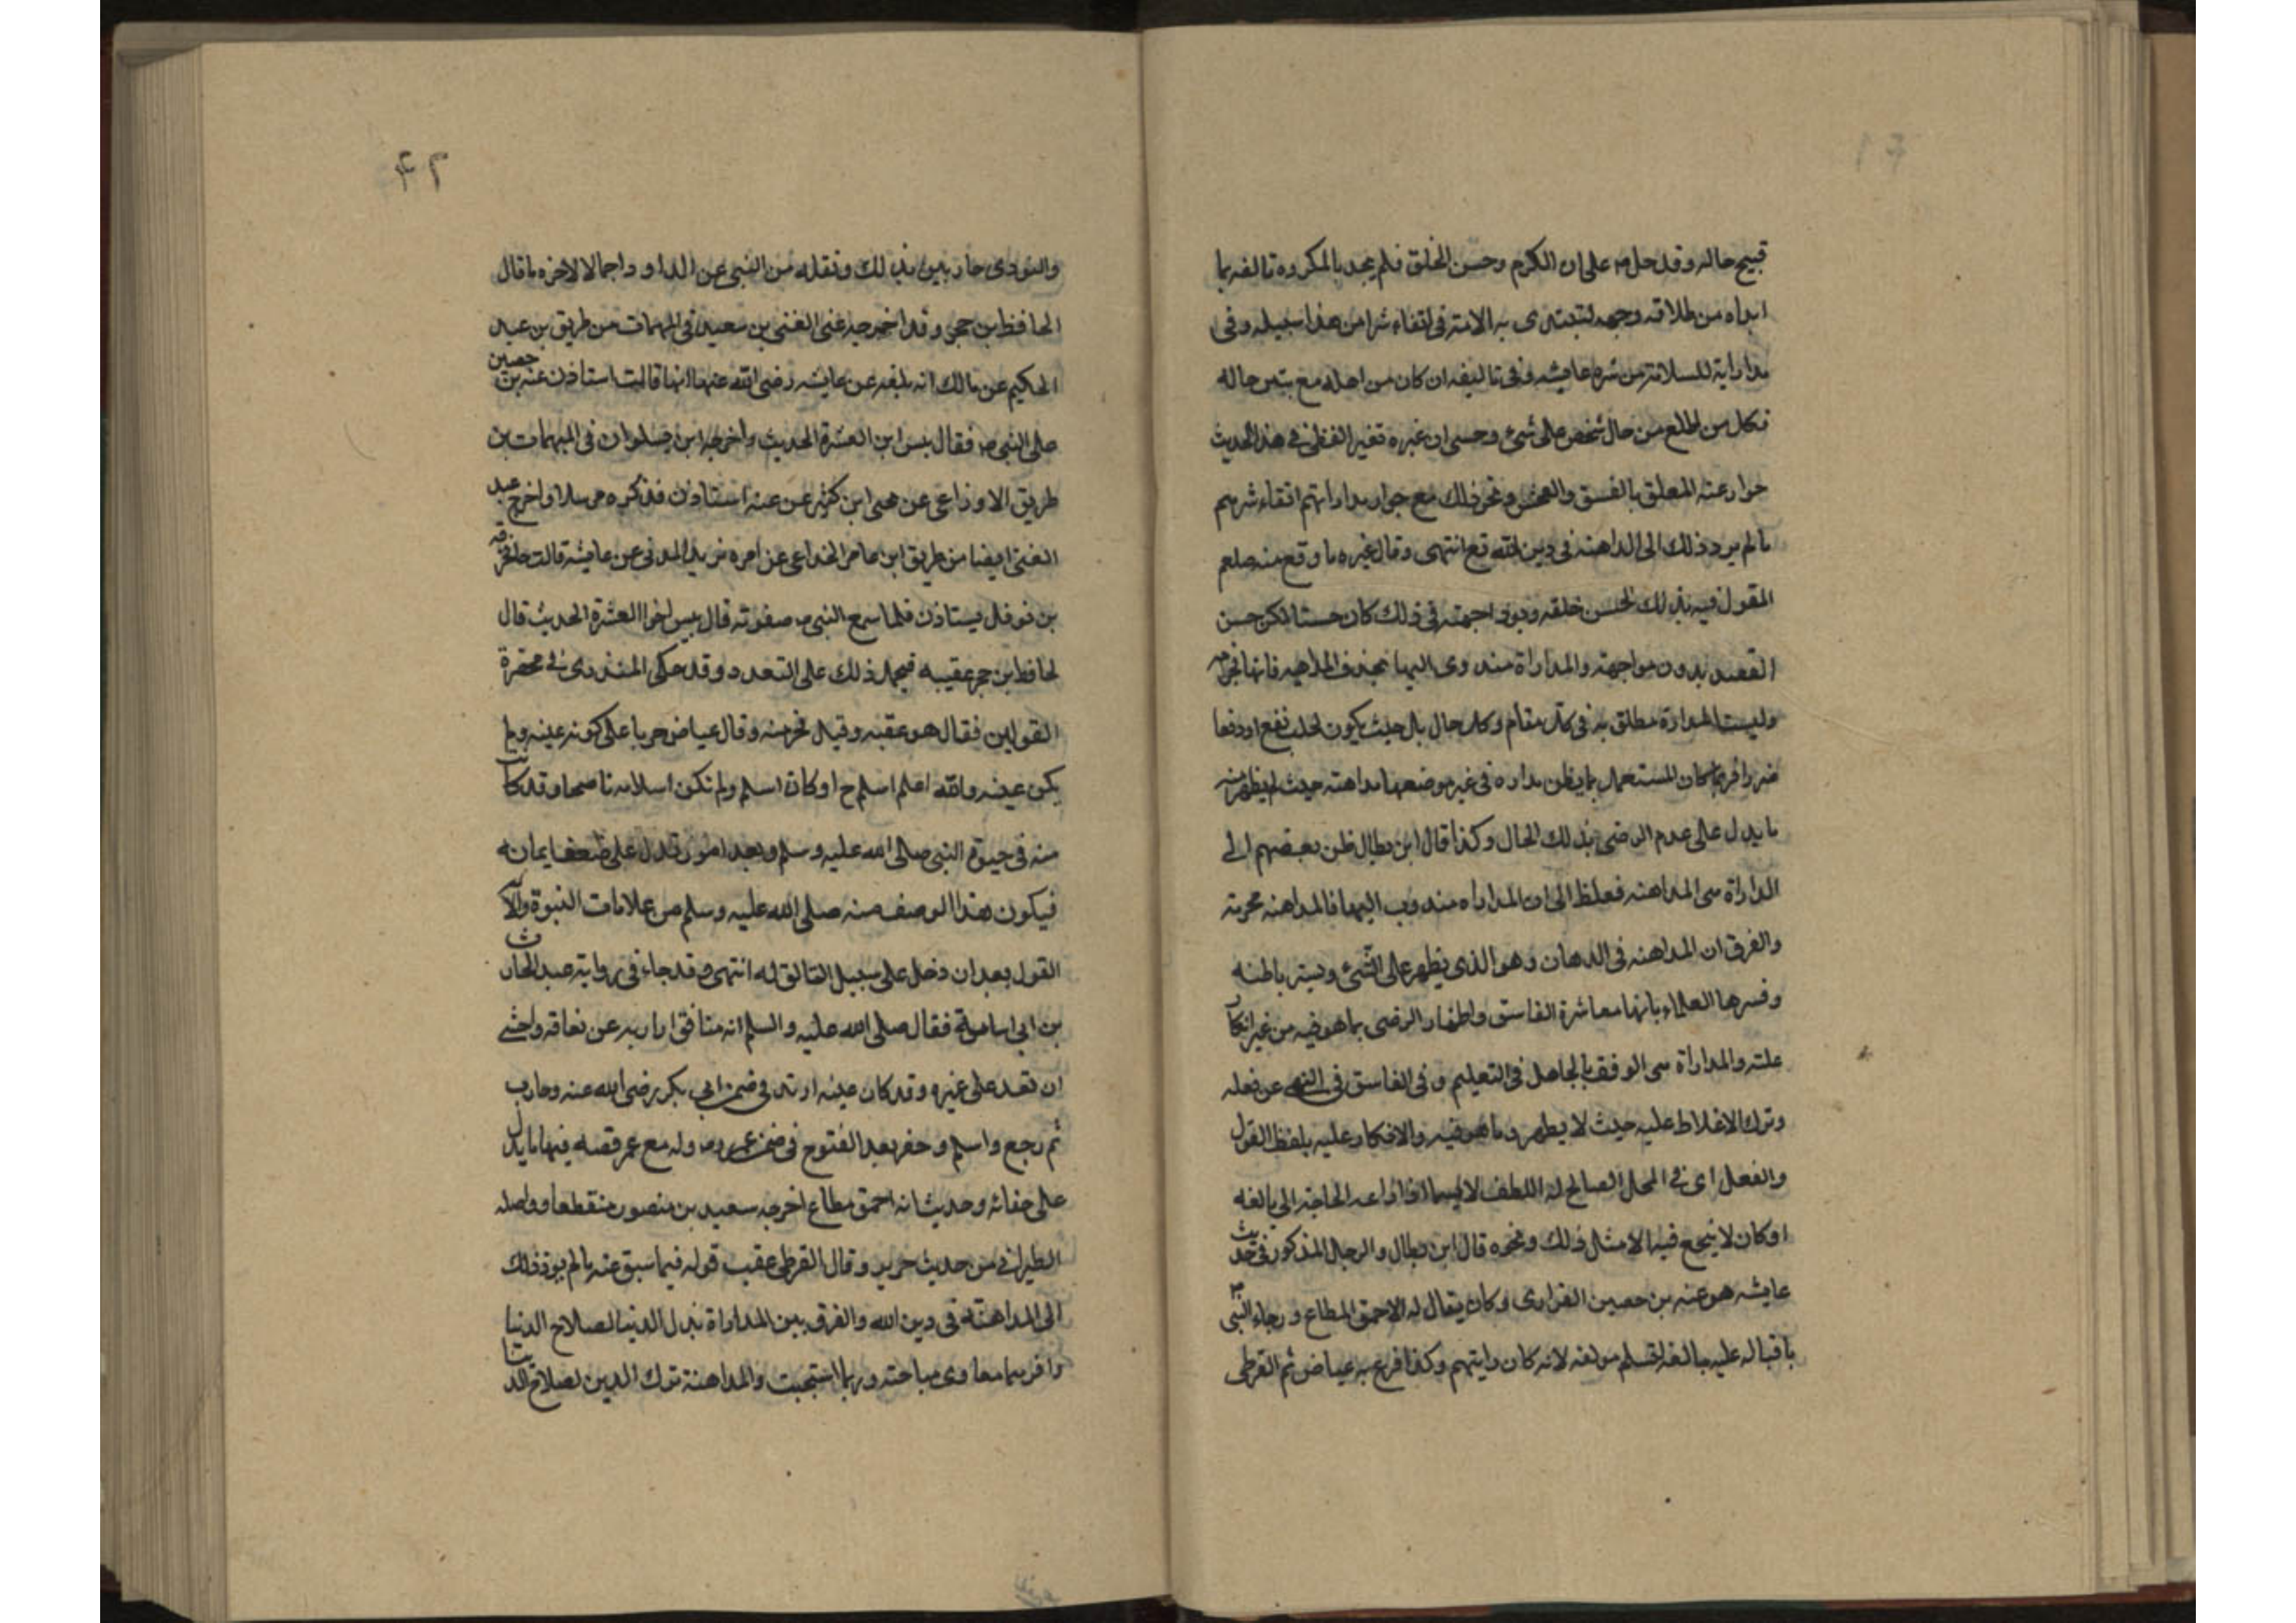 قبيح حاله وقد حل م على ان الكرم وحسن الخلق فلم يجد بالمكروه تالفه بما
ابداه من طلاقه وجهه لتقتدى به الامته فى اتقاء شر من هذا سبيله وفى
مداراية للسلامته من شره عايشه وفى تاليفه ان كان من اهله مع بتين حاله
فكل من طلع من حال شخص على شئ وحسى ان غيره تغير الفظ فى هذا الحديث
جوار عته المعلق بالفسق والفحش ونحو ذلك مع جوار مداراتهم اتقاء شرهم
ما لم يرد ذلك الى المداهنه فى دين الله تع انتهى وقال غيره ما وقع منه صلعم
المقول فيه بذلك لحسن خلقه وبود اجهته فى ذلك كان حسنا لكن حسن
القصد بدون مواجهته والمداراة مندوى اليها بخذف المداهيه فانها
وليست المدارة مطلق به فى كل مقام وكل حال بل حيث يكون لجلب نفع او دفعا
ضررا فربما كان المستعمل بما يظن مداره فى غير موضعها مداهنته حيث لم يظهر منه
ما يدل على عدم الرضى بذلك الحال وكذا قال ابن بطال ظن بعضهم ان
المداراة هى المداهنه فغلظ الى ان المداراه مندوب اليها فالمداهنه محرمته
والفرق ان المداهنه فى الدهان وهو الذى يظهر على الشئ ويستر باطنه
وفسرها العلماء بانها معاشرة الفاسق واظهار الرضى بما هو فيه من غير انكار
علته والمداراة هى الوفق بالجاهل فى التعليم وفى الفاسق فى النهى عن فعله
وترك الاغلاط عليه حيث لا يظهر ما هو فيه والافكار عليه بلفظ القول
والفعل اى فى المحل الصالح له اللطف لا ليسما اذا داعه الحاجه الى بالغه
او كان لا ينجع فيه الا مثل ذلك ونحوه قال ابن بطال والرجال المذكور فى حديث
عايشه هو عنه بن حصين الفزارى وكان يقال له الاحمق المطاع ورجاء النبى م
باقباله عليه بالغه لتسلم مولفه لانه كان رايتهم وكذا فرع به عياض ثم القرطى
٤٢
والنودى جاربين بذلك ونقله من النبى عن الداود اجمالا لاخره ما قال
الحافظ بن حجر وقد اخرجه غنى الغنى بن سعيد فى المهمات من طريق بن عبد
الحكيم عن مالك انه بلغه عن عايشه رضى الله عنها انها قالت استاذن عنه بن حصين
صلى النبى م فقال بس ابن العشرة الحديث واخرجه ابن فى المبهمات بن
طريق الاوزاعى عن يحيى ابن كثير عن عنه استاذن فذكره مرسلا واخرج عبد
الغنى ايضا من طريق ابن عامر الخداعى عن امره نريد المدنى عن عايشه قالت جا مخرمه
بن نوفل يستاذن فلما سمع النبى م صفوته قال بيس اخوا العشرة الحديث قال
لحافظ بن حجر عقيبه فيحمل ذلك على التعدد وقد حكى المنذرى فى مختصرة
القولين فقال هو عقبه وقيل مخرمه وقال عياض حربا على كونه عينه ولم
يكن عينه والله اعلم اسلم ح او كان اسلم ولم تكن اسلامه ناصحا وقد كانت
منه فى حيوة النبى صلى الله عليه وسلم وبعد امور تدل على ضعف ايمانه
فيكون هذا الوصف منه صلى الله عليه وسلم من علامات النبوة والآ
القول بعد ان دخل على سبيل التالق له انتهى وقد جاء فى رواية عبد الحارث
بن ابى اسامة فقال صلى الله عليه والسلم انه منافق اداريه عن نفاقه واخشى
ان تفسد على غيره وقد كان عينه ارتد فى ضمن ابى بكر رضى الله عنه وحارب
ثم رجع واسلم وحضر بعد الفتوح فى ضمن عمر رضه وله مع عمر قصه فيها ما يدل
على جفائه وحديث انه احمق مطاع اخرجه سعيد بن منصور منقطعا ووصله
الطبرانى من حديث جرير وقال القرطى عقيب قوله فيما سبق عنه ما لم يود ذلك
الى المداهنة فى دين الله والفرق بين المداراة بذل الدنيا لصلاح الدنيا
وافربهما معا وى مباحته وربما استجبت والمداهنة ترك الدين لصلاح الدنيا